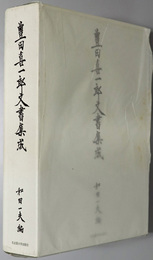 豊田喜一郎文書集成
和田一夫編
豊田喜一郎文書集成
和田一夫 編